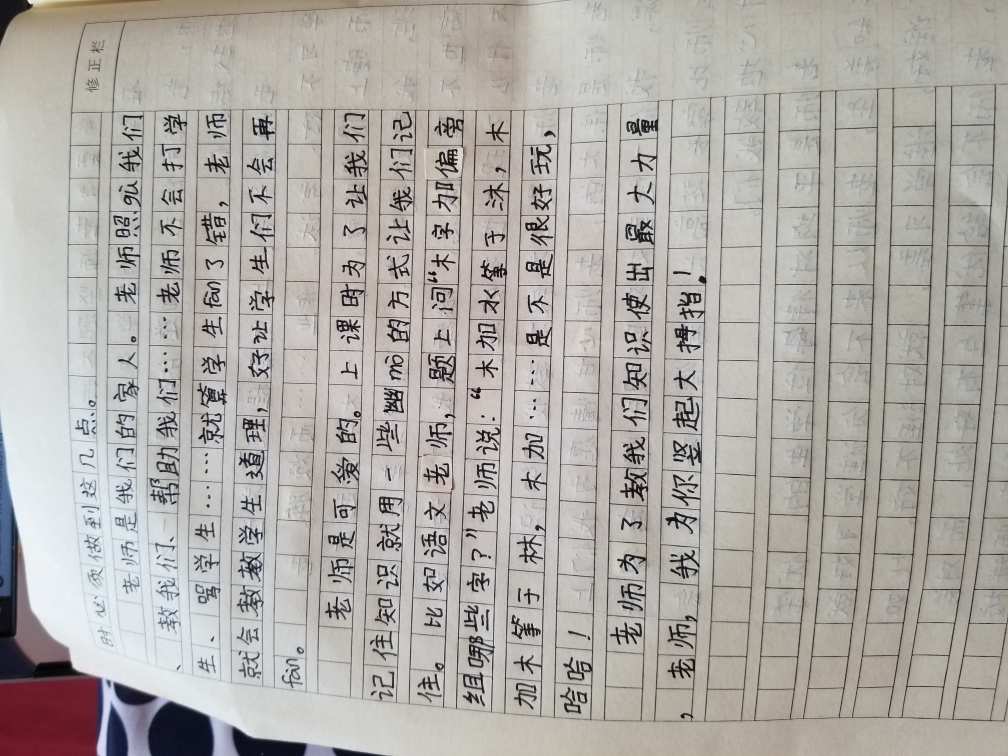 修正栏
时必须做到这几点。
老师是我们的家人。老师照gù我们
、教我们、帮助我们……老师不会打学
生、骂学生……就算学生fàn了错，老师
就会教教学生道理，好让学生们不会再
fàn。
老师是可爱的。上课时为了让我们
记住知识就用一些幽mò的方式让我们记
住。比如语文老师，题上问“木字加偏旁
组哪些字？”老师说：“木加水等于沐，木
加木等于林，木加……是不是很好玩，
哈哈！
老师为了教我们知识使出最大力量
，老师，我为你竖起大拇指！